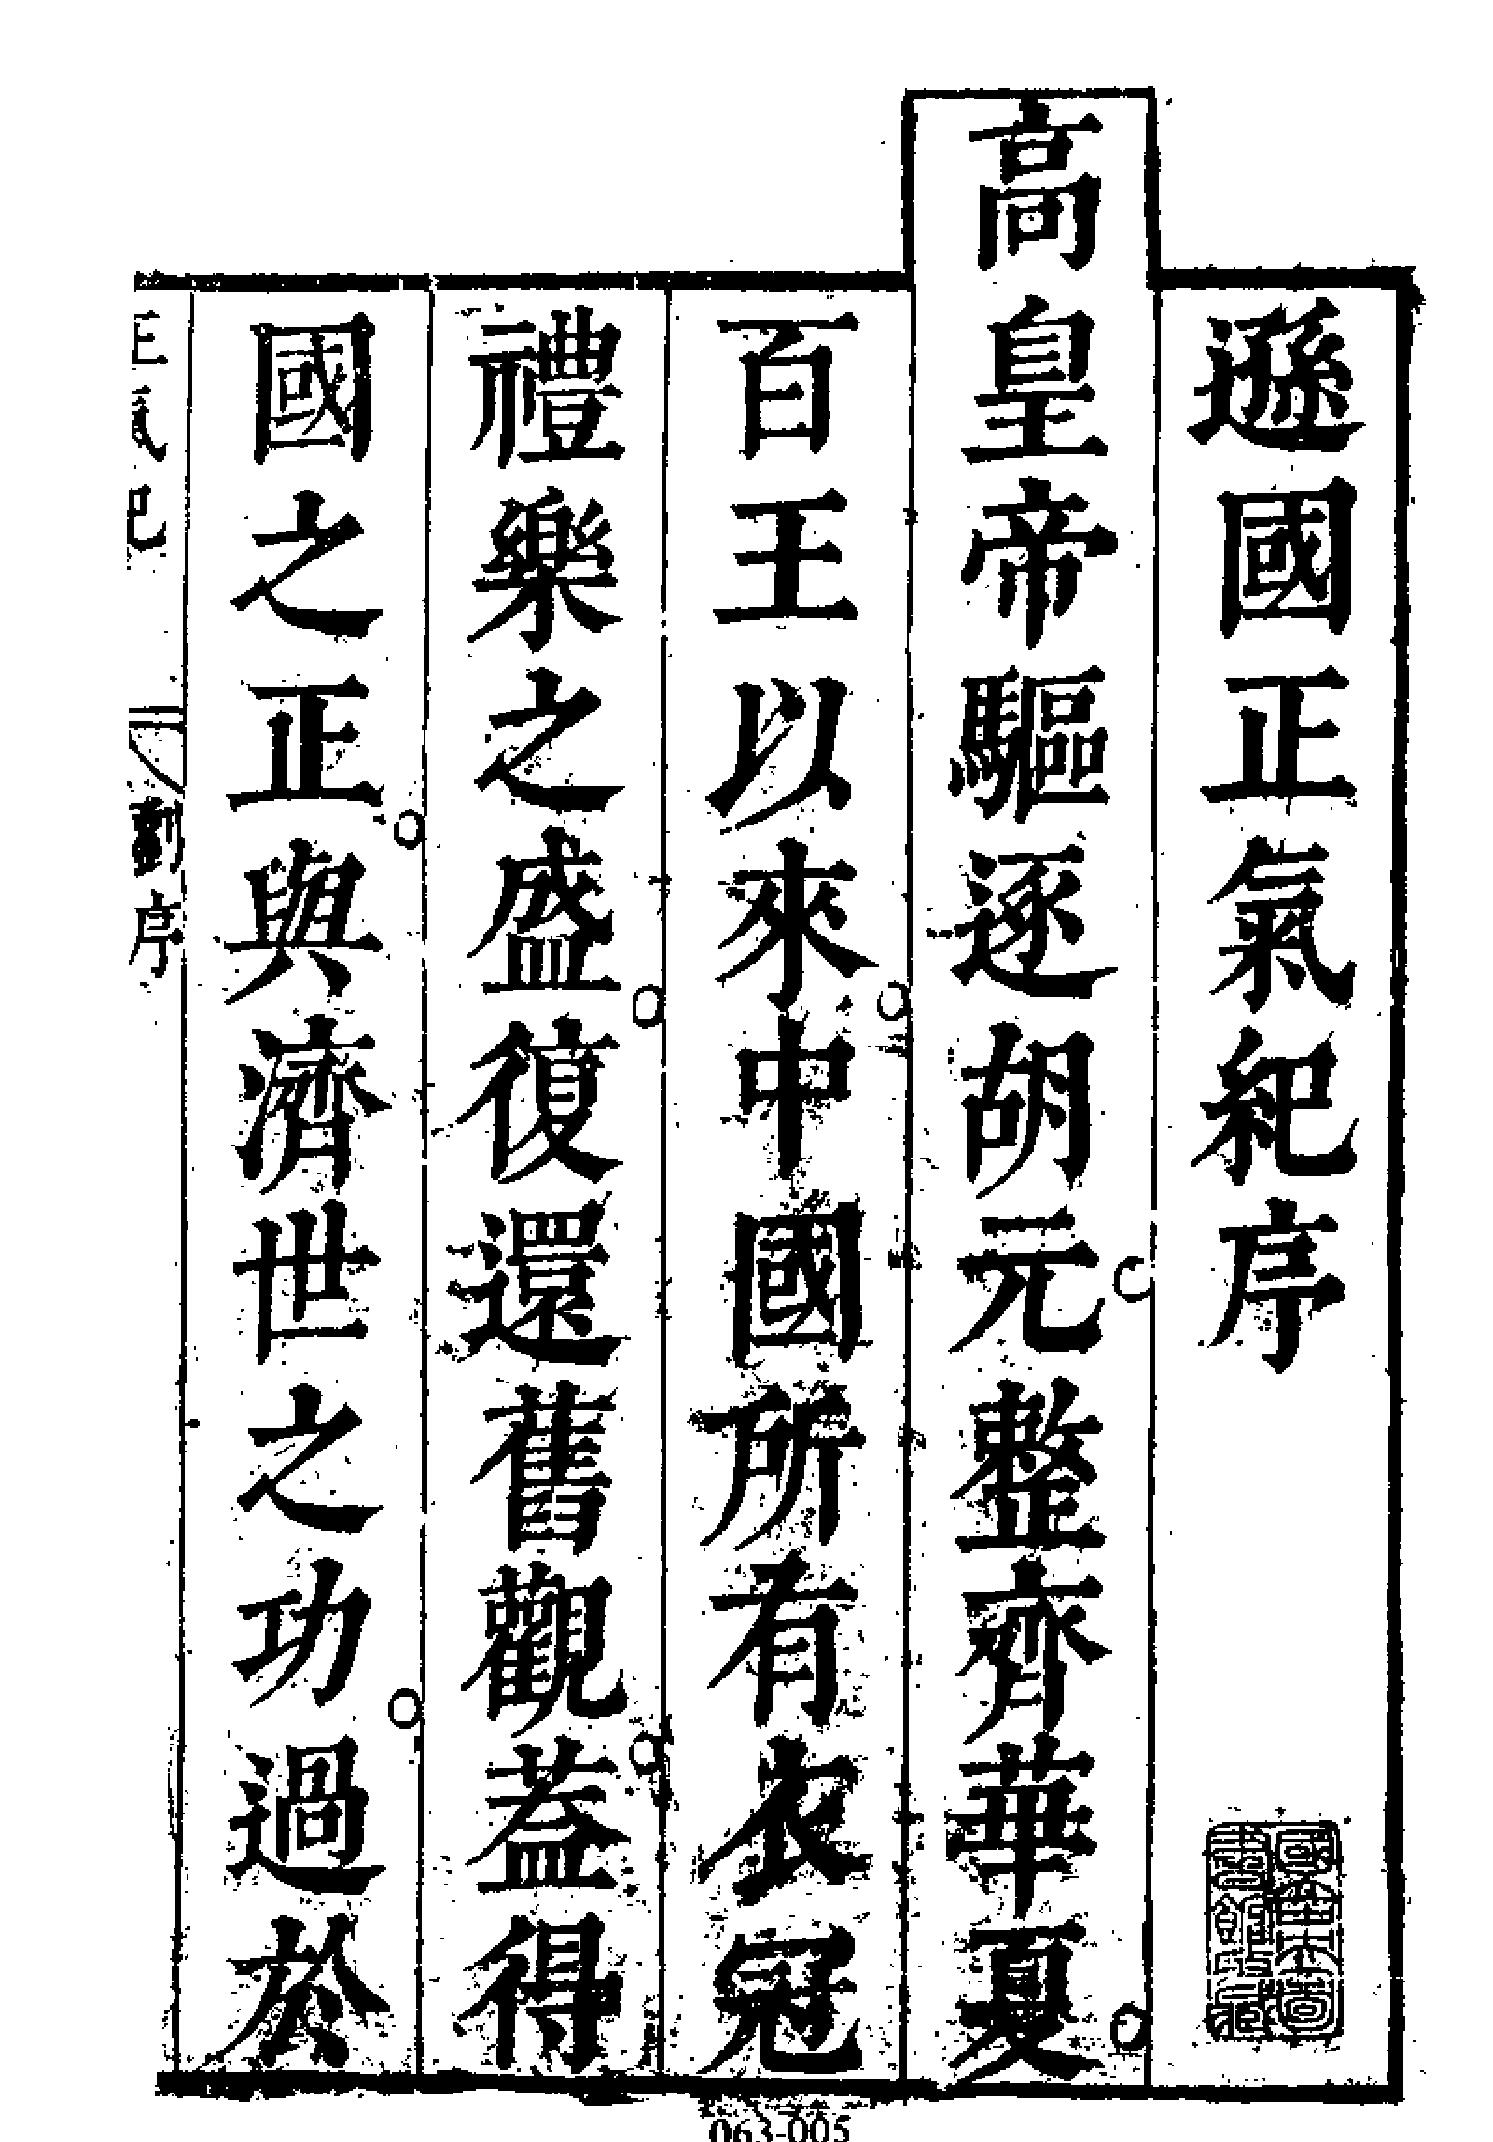 遜國正氣紀序
高皇帝驅逐胡元整齊華夏
百王以來中國所有衣冠
禮樂之盛復還舊觀蓋得
國之正與濟世之功過於
正氣紀
劉序
國立北平圖書館收藏
063-005